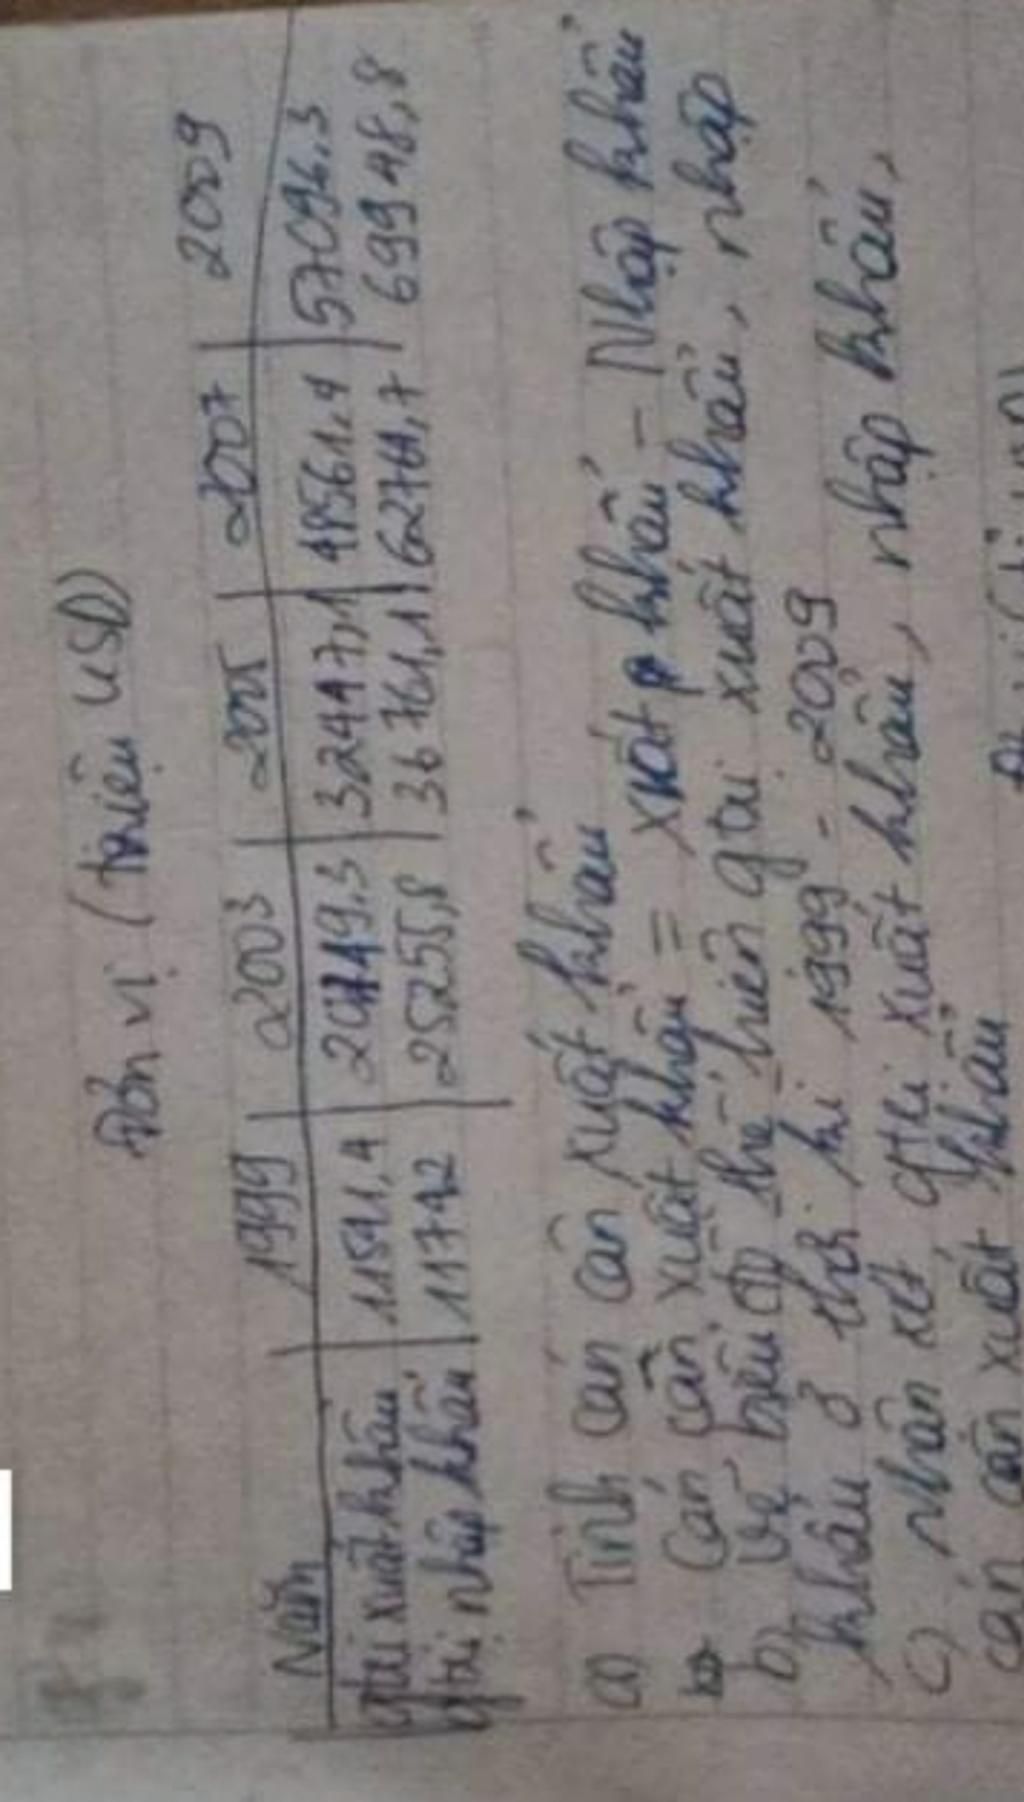 Đơn vị (triệu USD)
Năm 1999 2003 2005 2007 2009
gtrị xuất khẩu 11541,4 20149,3 32447,1 48561,4 57096,3
gtrị nhập khẩu 11742 25255,8 36761,1 62764,7 69948,8
a) Tính cán cân xuất khẩu
Cán cân xuất khẩu = xuất khẩu - Nhập khẩu
b) Vẽ biểu đồ thể hiện gtrị xuất khẩu, nhập
khẩu ở thời kì 1999 - 2009
c) nhận xét gtrị xuất khẩu, nhập khẩu,
cán cân xuất khẩu